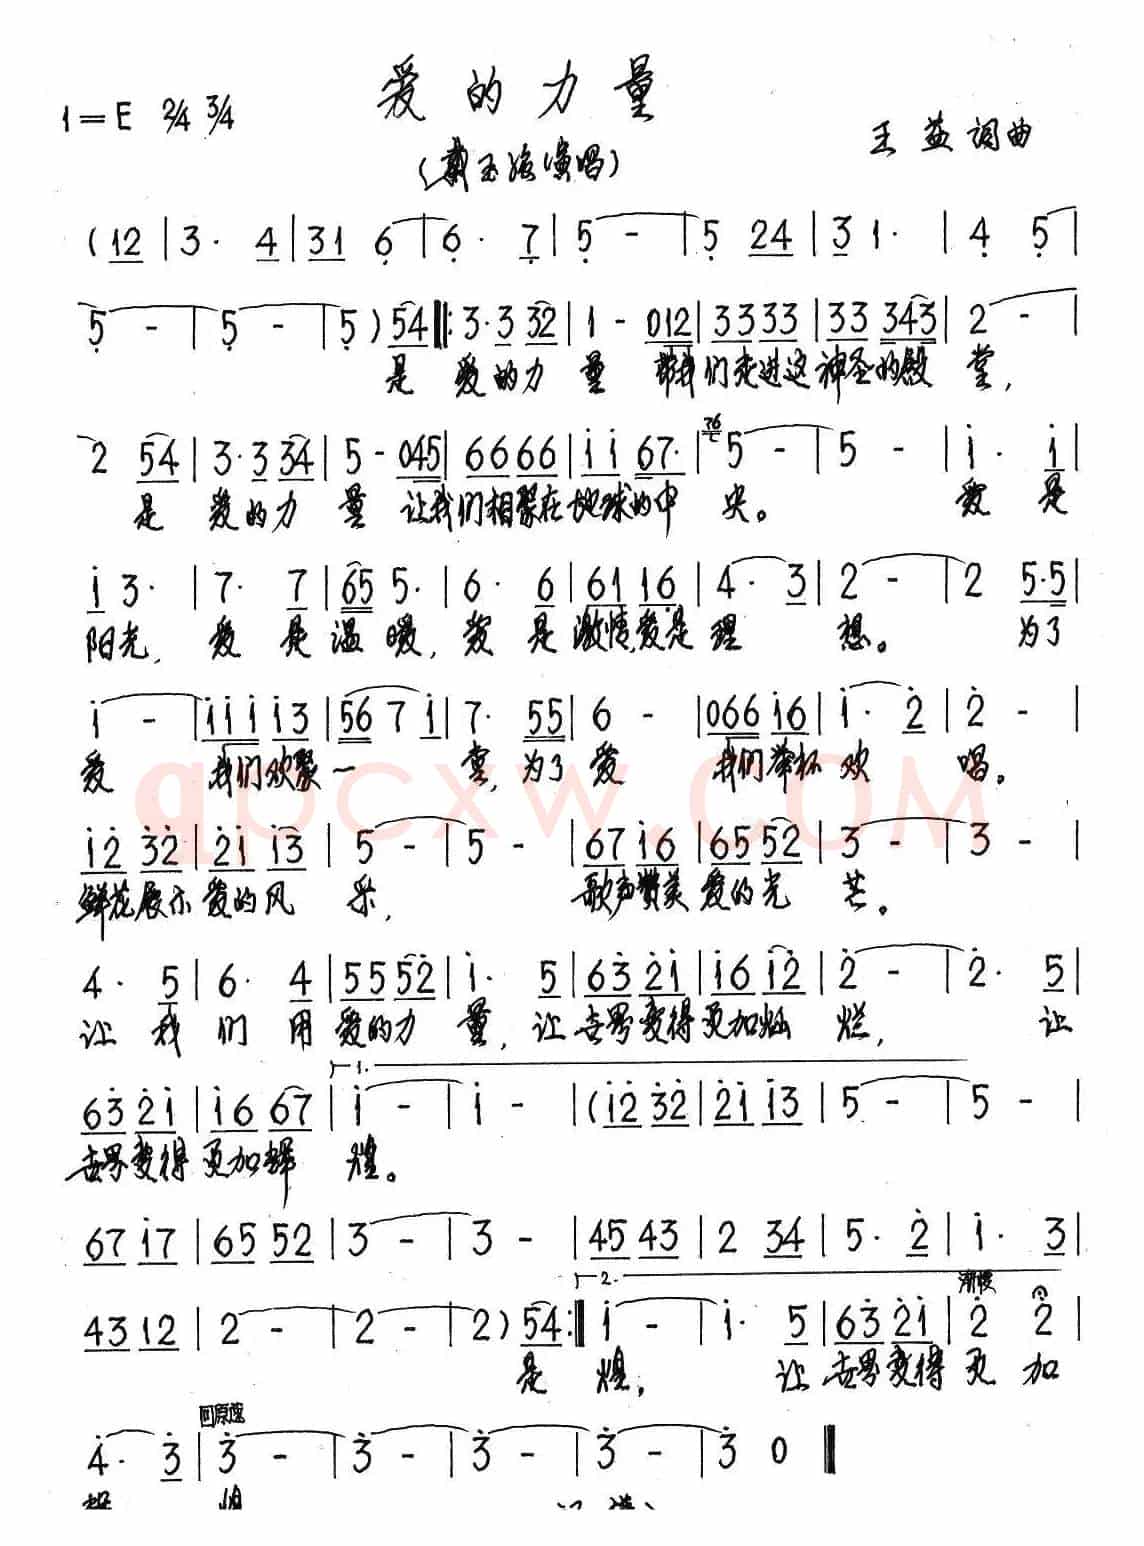 爱的力量
1=E 2/4 3/4
王益词曲
(戴玉强演唱)
( 12 | 3· 4 | 31 6 | 6· 7 | 5 - | 5 24 | 3 1· | 4 5 |
5 - | 5 - | 5 ) 54 ‖: 3·3 32 | 1 - 012 | 33 33 | 33 343 | 2 - |
是 爱的力 量 带我们走进这神圣的殿 堂,
2 54 | 3·3 34 | 5 - 045 | 66 66 | i i 67· | 76 5 - | 5 - | i· i |
是 爱的力 量 让我们相聚在地球的中 央。 爱 是
i 3· | 7· 7 | 65 5· | 6· 6 | 61 16 | 4· 3 | 2 - | 2 5·5 |
阳光, 爱 是 温 暖, 爱 是 激情,爱是 理 想。 为了
i - | i i i i 3 | 56 7 i | 7· 55 | 6 - | 066 i6 | i· 2 | 2 - |
爱 我们欢聚一 堂,为了爱 我们举杯欢 唱。
qpcxw.COM
i2 32 | 2i i3 | 5 - | 5 - | 67 i6 | 65 52 | 3 - | 3 - |
鲜花展示爱的风 采, 歌声赞美爱的光 芒。
4· 5 | 6· 4 | 55 52 | i· 5 | 63 2i | i6 i2 | 2 - | 2· 5 |
让 我 们 用 爱的力 量,让世界变得更加灿 烂, 让
1.
63 2i | i6 67 | i - | i - | ( i2 32 | 2i i3 | 5 - | 5 - |
世界变得更加辉 煌。
67 i7 | 65 52 | 3 - | 3 - | 45 43 | 2 34 | 5· 2 | i· 3 |
2. 渐慢
43 12 | 2 - | 2 - | 2 ) 54 :‖ i - | i· 5 | 63 2i | 2 2 |
是 煌, 让 世界变得更 加
回原速
4· 3 | 3 - | 3 - | 3 - | 3 - | 3 0 ‖